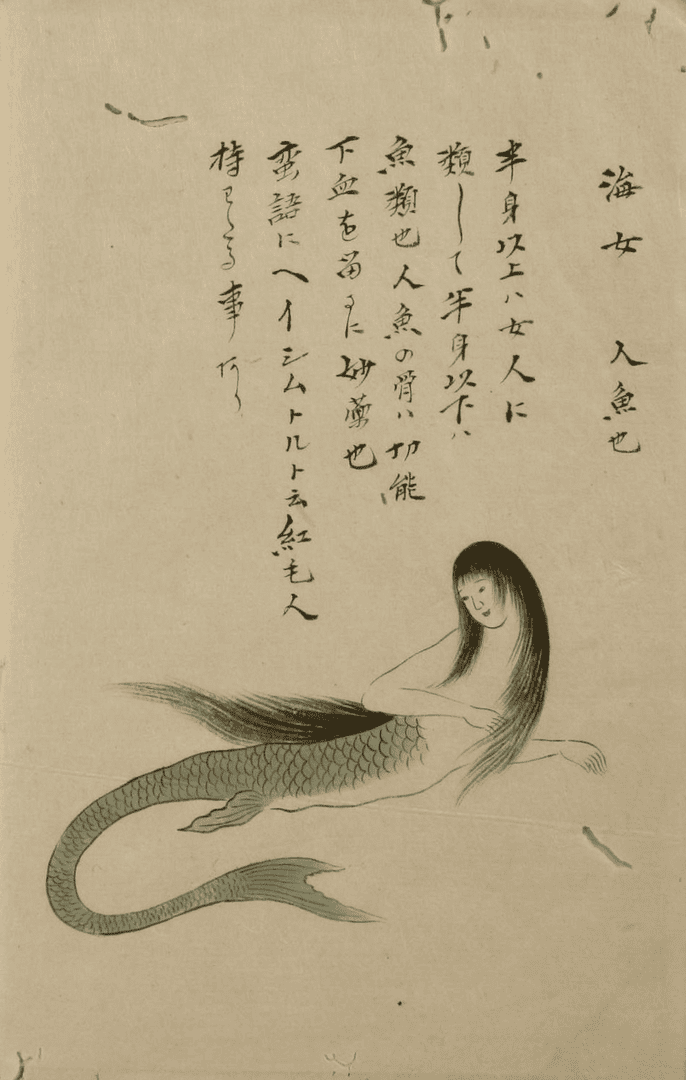 海女 人魚也
半身以上ハ女人に
類して半身以下ハ
魚類也人魚の骨ハ功能
下血を留るに妙薬也
蛮語にヘイシムトルト云紅毛人
持わたる事有り